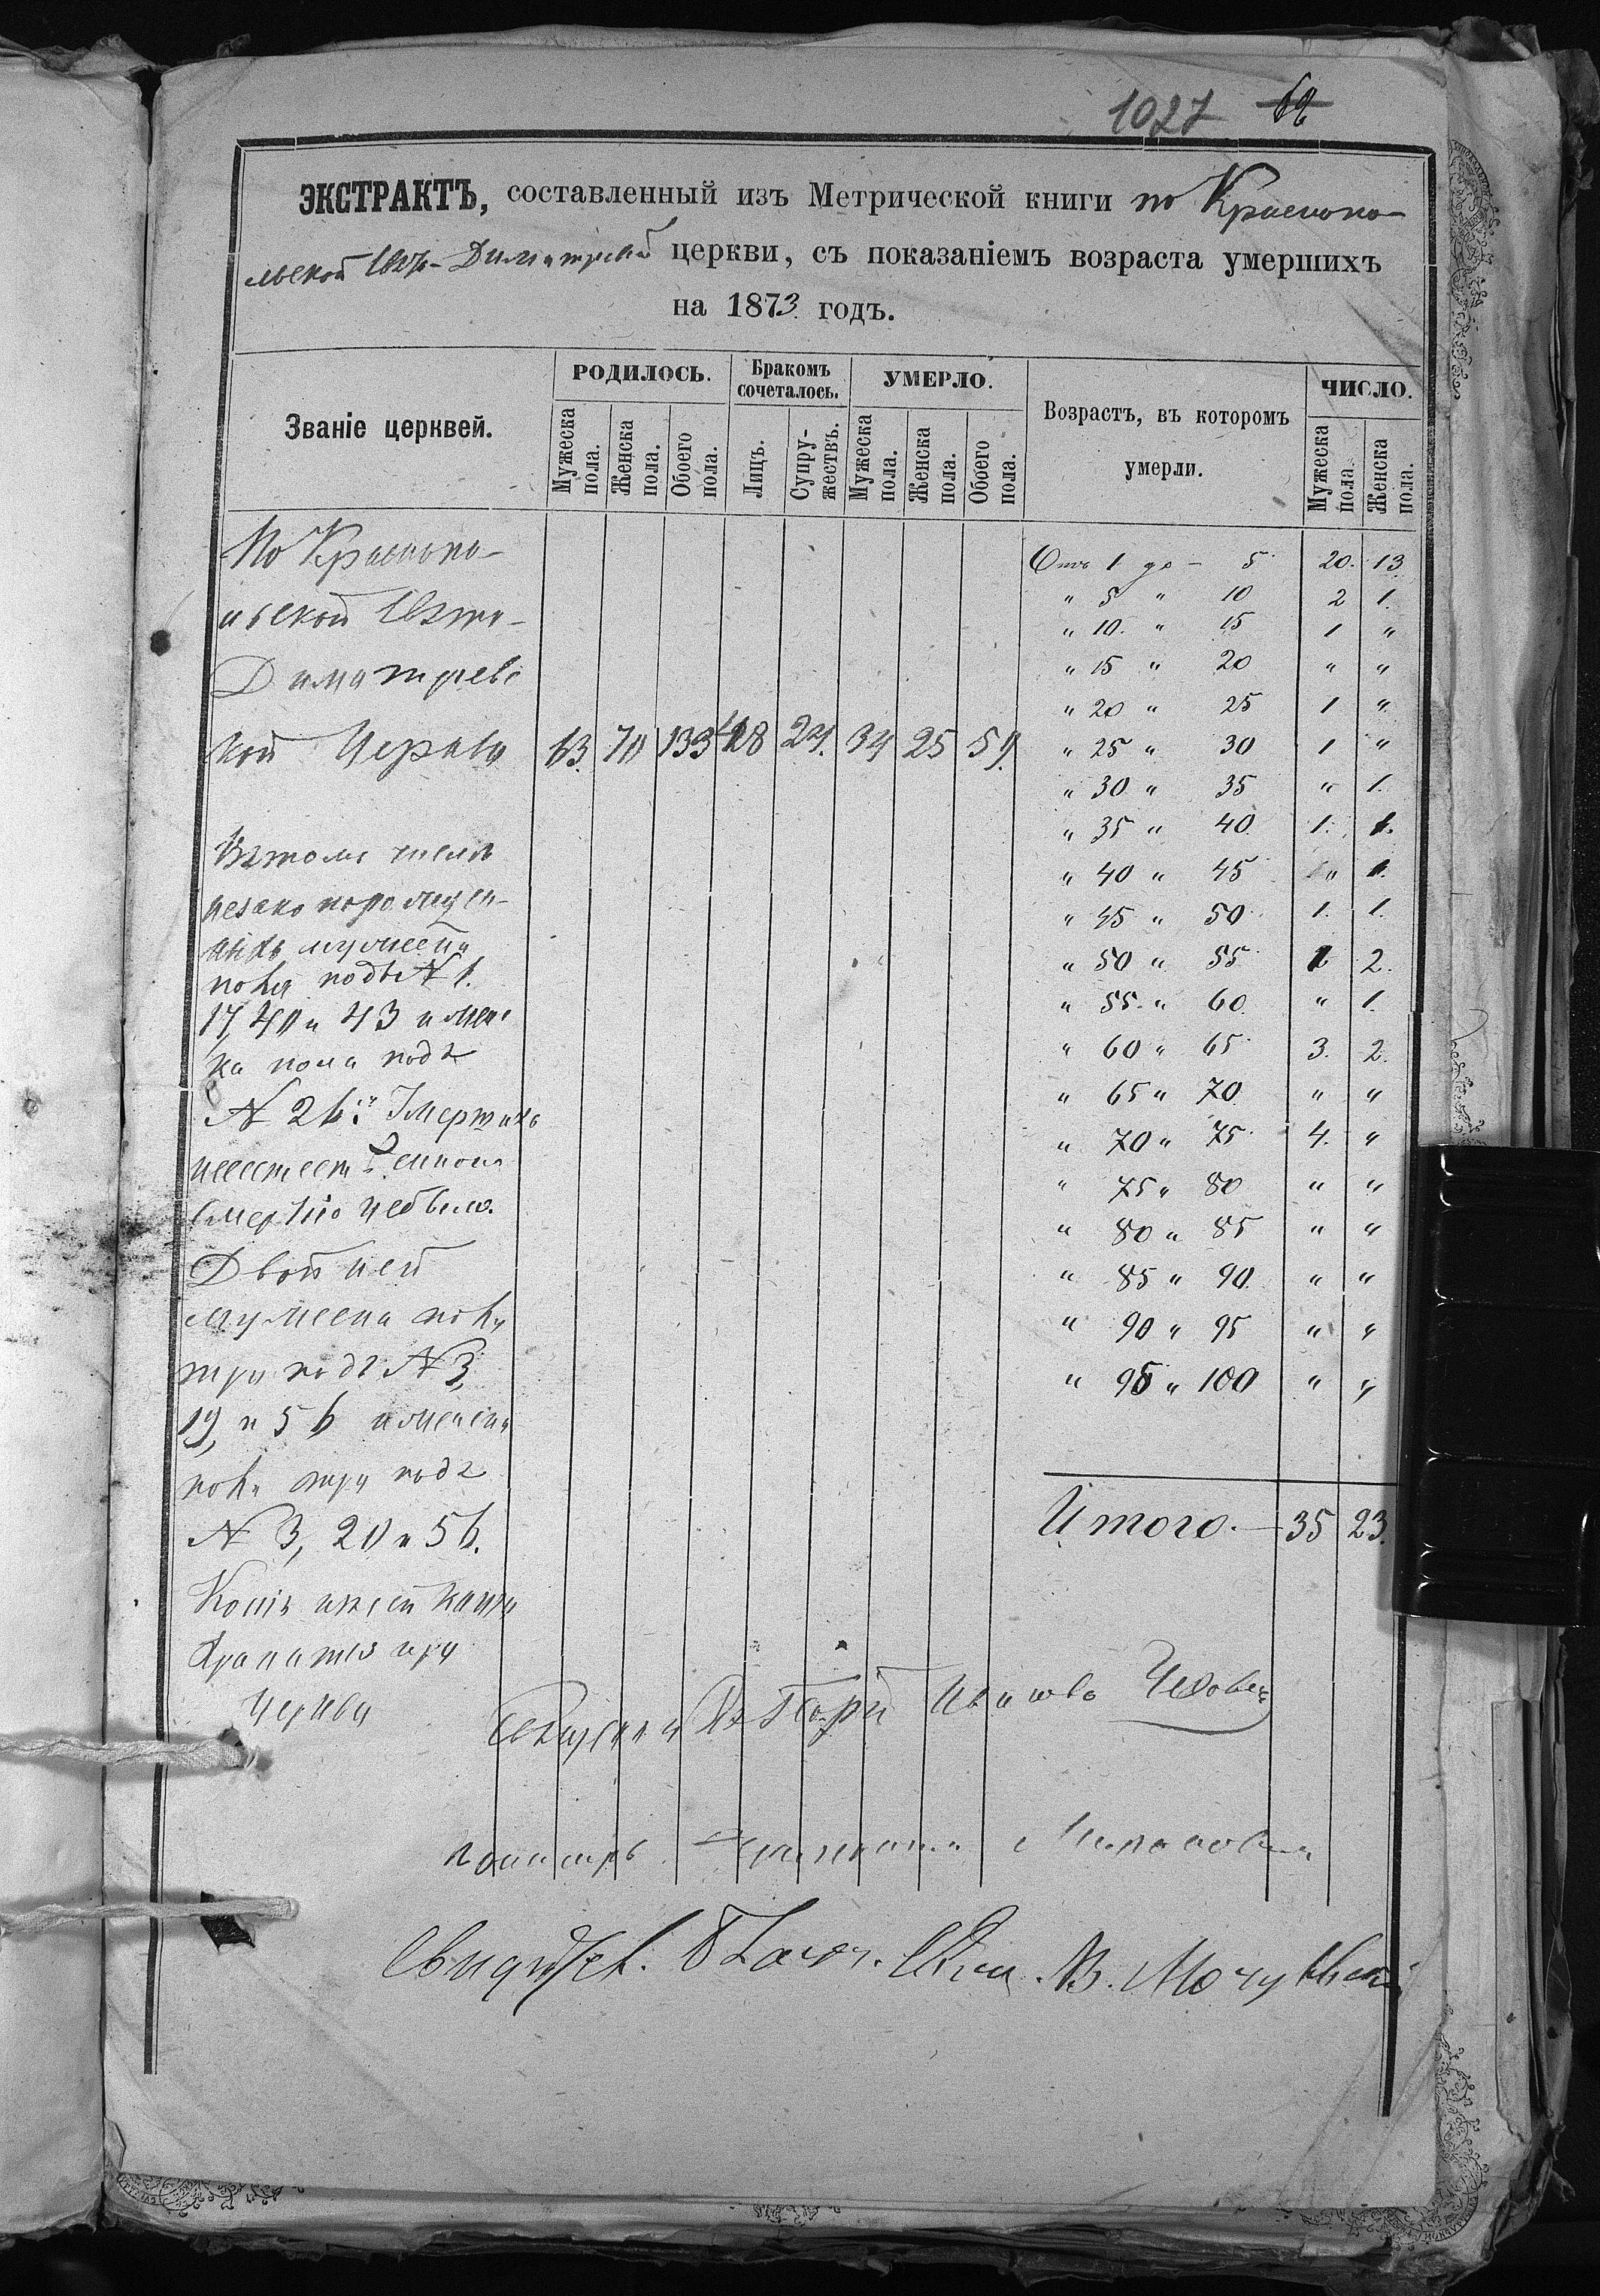 1027 62
ЭКСТРАКТЪ, составленный изъ Метрической книги по Краснопо-
льской Свято-Димитріев церкви, съ показаніемъ возраста умершихъ
на 1873. годъ.
Званіе церквей.
РОДИЛОСЬ.
Бракомъ сочеталось.
УМЕРЛО.
Возрастъ, въ которомъ умерли.
ЧИСЛО.
Мужеска пола. Женска пола. Обоего пола. Лицъ. Супружествъ. Мужеска пола. Женска пола. Обоего пола. Мужеска пола. Женска пола.
По Краснопо-
льской Свято-
Димитріевс
кой Церкви 63. 70 133 48 24. 34 25 59.
Втомъ числѣ
незаконорожден-
ныхъ мужеска
пола подъ № 1.
17, 40 и 43 и женс
ка пола подъ
№ 26. Умершихъ
неестественною
смертію небыло.
Двойней
мужеска пола
три подъ № 3,
19, и 56 и женска
пола три подъ
№ 3, 20 и 56.
Копія книги
хранится при
Церкви
Отъ 1 до - 5 20. 13
" 5 " 10 2 1.
" 10. " 15 1 "
" 15 " 20 " "
" 20 " 25 1 "
" 25 " 30 1 "
" 30 " 35 " 1.
" 35 " 40 1. 1.
" 40 " 45 " 1.
" 45 " 50 1. 1.
" 50 " 55 1 2.
" 55. " 60. " 1.
" 60 " 65 3. 2.
" 65 " 70 " "
" 70 " 75 4. "
" 75 " 80 " "
" 80 " 85 " "
" 85 " 90. " "
" 90 " 95 " "
" 95 " 100 " "
Итого. — 35 23.
Священникъ
Свидѣтел. Благоч. Свящ. В.